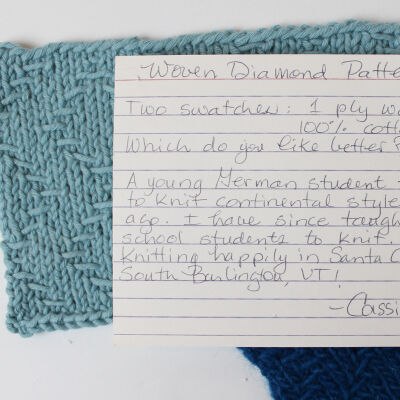 Woven Diamond Patte
Two swatches: 1 ply wo
100% cott
Which do you like better?
A young German student t
to knit continental style
ago. I have since taugh
school students to knit.
Knitting happily in Santa C
South Burlington, VT!
-Cassi